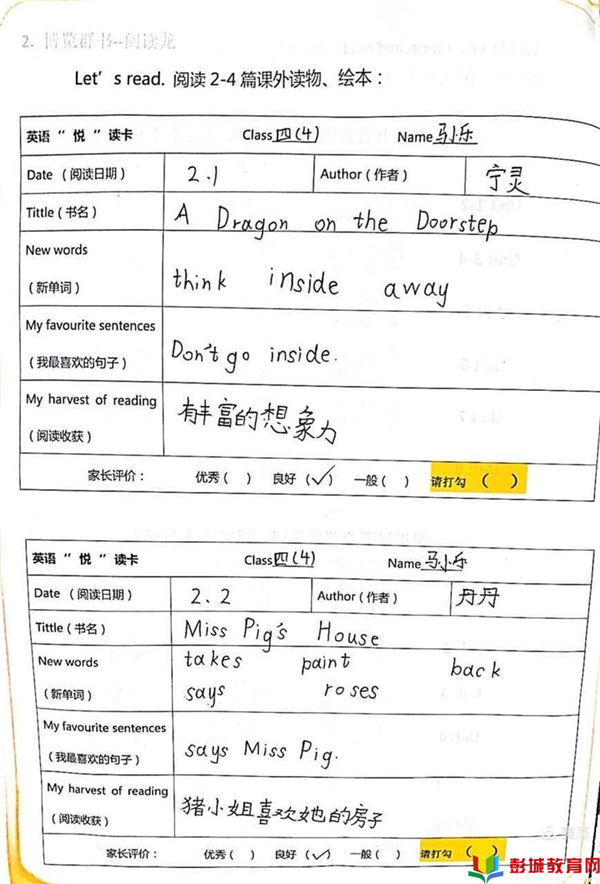 2. 博览群书--阅读龙
Let's read. 阅读2-4篇课外读物、绘本：
英语“悦”读卡 Class 四(4) Name 马小乐
Date（阅读日期） 2.1 Author（作者） 宁灵
Tittle（书名） A Dragon on the Doorstep
New words
（新单词） think inside away
My favourite sentences
（我最喜欢的句子） Don't go inside.
My harvest of reading
（阅读收获） 有丰富的想象力
家长评价： 优秀（ ） 良好（✓） 一般（ ） 请打勾（ ）
英语“悦”读卡 Class 四(4) Name 马小乐
Date（阅读日期） 2、2 Author（作者） 丹丹
Tittle（书名） Miss Pig's House
New words takes paint back
（新单词） says roses
My favourite sentences
（我最喜欢的句子） says Miss Pig.
My harvest of reading
（阅读收获） 猪小姐喜欢她的房子
家长评价： 优秀（ ） 良好（✓） 一般（ ） 请打勾（ ）
彭城教育网